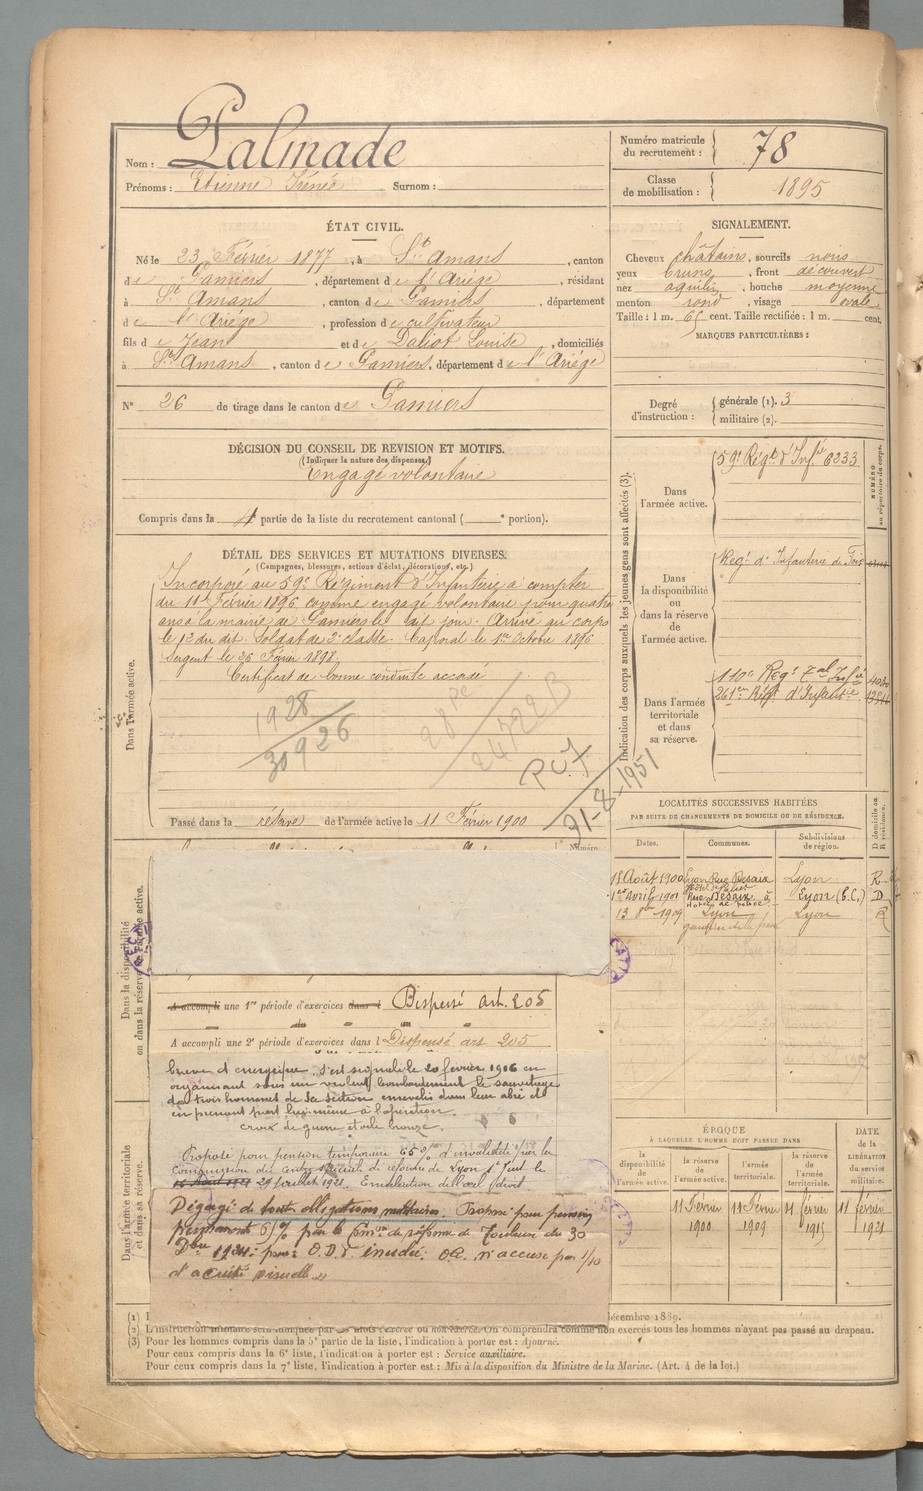 Nom : Palmade
Prénoms : Etienne Irénée Surnom :
Numéro matricule du recrutement : 78
Classe de mobilisation : 1895
ÉTAT CIVIL.
Né le 23 Février 1877, à St Amans, canton
de Pamiers, département de l'Ariège, résidant
à St Amans, canton de Pamiers, département
de l'Ariège, profession de cultivateur
fils de Jean et de Daliot Louise, domiciliés
à St Amans, canton de Pamiers, département de l'Ariège
N° 26 de tirage dans le canton de Pamiers
SIGNALEMENT.
Cheveux châtains, sourcils noirs
yeux bruns, front découvert
nez aquilin, bouche moyenne
menton rond, visage ovale
Taille : 1 m. 65 cent. Taille rectifiée : 1 m. cent.
MARQUES PARTICULIÈRES :
Degré d'instruction : générale (1). 3
militaire (2).
DÉCISION DU CONSEIL DE REVISION ET MOTIFS.
(Indiquer la nature des dispenses)
Engagé volontaire
Compris dans la 4e partie de la liste du recrutement cantonal ( e portion).
DÉTAIL DES SERVICES ET MUTATIONS DIVERSES.
(Campagnes, blessures, actions d'éclat, décorations, etc.)
Dans l'armée active.
Incorporé au 59e Régiment d'Infanterie à compter
du 11 Février 1896 comme engagé volontaire pour quatre
ans à la mairie de Pamiers le dit jour. Arrivé au corps
le 12 du dit. Soldat de 2e classe. Caporal le 1er Octobre 1896
Sergent le 26 Février 1898.
Certificat de bonne conduite accordé
1928
30926
24722B
PC7
31-8-1951
Passé dans la réserve de l'armée active le 11 Février 1900
Indication des corps auxquels les jeunes gens sont affectés (3).
NUMÉRO au répertoire du corps.
Dans l'armée active.
59e Régt d'Infie 6233
Dans la disponibilité ou dans la réserve de l'armée active.
Régt d'Infanterie de Foix
Dans l'armée territoriale et dans sa réserve.
110e Régt Tal Infie
261e Régt d'Infantie
LOCALITÉS SUCCESSIVES HABITÉES
PAR SUITE DE CHANGEMENTS DE DOMICILE OU DE RÉSIDENCE.
Dates. Communes. Subdivisions de région. D domicile ou R résidence.
18 Août 1900 Lyon Rue Desaix Lyon R
1er Avril 1901 Rue Desaix à Lyon (B.C.) D
13 1909 Lyon Lyon R
Dans la disponibilité ou dans la réserve de l'armée active.
A accompli une 1re période d'exercices dans l Dispensé art. 205
A accompli une 2e période d'exercices dans l Dispensé art 205
Dans l'armée territoriale et dans sa réserve.
brave et énergique. S'est signalé le 20 février 1916 en
organisant sous un violent bombardement le sauvetage
de trois hommes de sa section ensevelis dans leur abri et
en prenant part lui-même à l'opération.
croix de guerre étoile bronze.
Proposé pour pension temporaire 65% d'invalidité par la
commission du centre spécial de réforme de Lyon St Just le
29 juillet 1921. Enucléation de l'œil droit
Dégagé de toutes obligations militaires. Proposé pour pension
permanente 65% par la Comon de réforme de Toulouse du 30
Dbre 1924 : pour : O.D. énuclée. OG. n'accuse pas 1/10
d'acuité visuelle
ÉPOQUE
À LAQUELLE L'HOMME DOIT PASSER DANS
la disponibilité de l'armée active. la réserve de l'armée active. l'armée territoriale. la réserve de l'armée territoriale.
DATE de la LIBÉRATION du service militaire.
11 Février 1900
11 Février 1909
11 février 1915
11 février 1921
décembre 1889.
(2) L'instruction militaire sera indiquée par les mots : exercé ou non exercé. On comprendra comme non exercés tous les hommes n'ayant pas passé au drapeau.
(3) Pour les hommes compris dans la 5e partie de la liste, l'indication à porter est : Ajourné.
Pour ceux compris dans la 6e liste, l'indication à porter est : Service auxiliaire.
Pour ceux compris dans la 7e liste, l'indication à porter est : Mis à la disposition du Ministre de la Marine. (Art. 4 de la loi.)